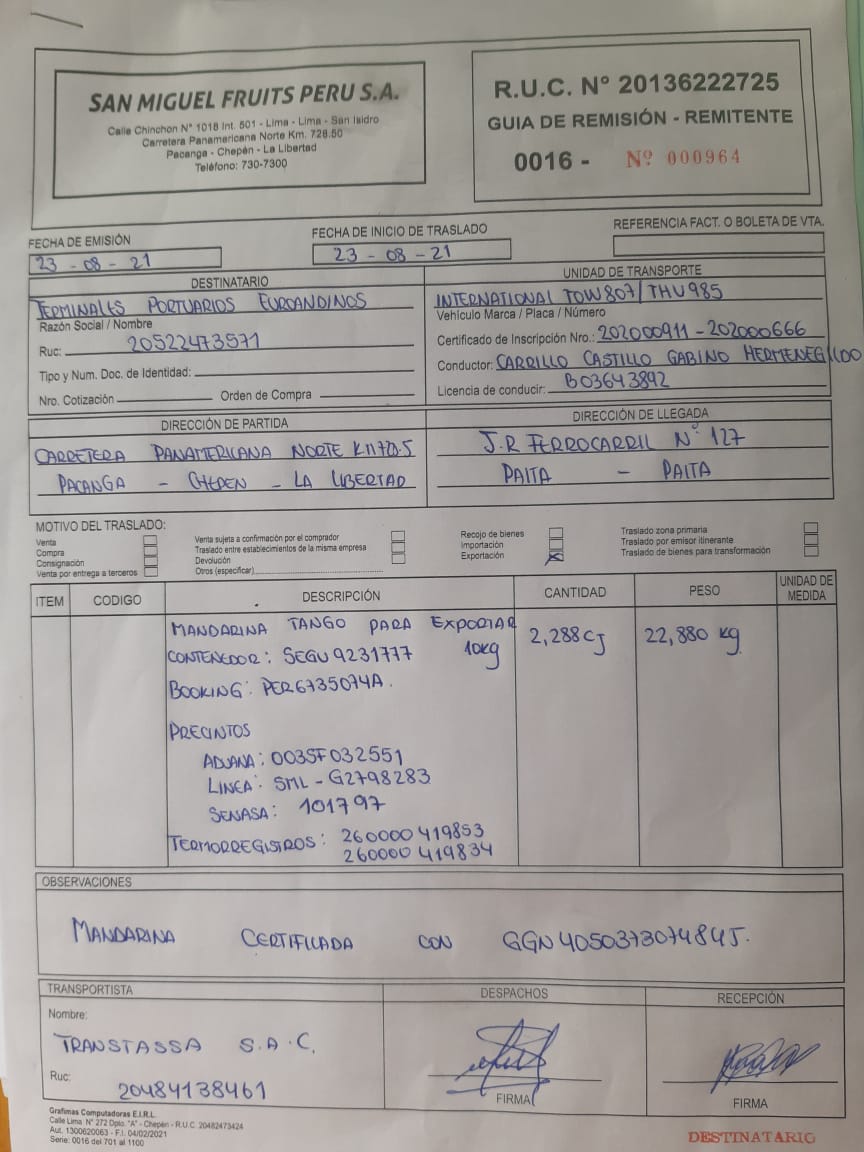 SAN MIGUEL FRUITS PERU S.A.
Calle Chinchon N° 1018 Int. 501 - Lima - Lima - San Isidro
Carretera Panamericana Norte Km. 728.50
Pacanga - Chepén - La Libertad
Teléfono: 730-7300
R.U.C. N° 20136222725
GUIA DE REMISIÓN - REMITENTE
0016 - Nº 000964
FECHA DE EMISIÓN
23 - 08 - 21
FECHA DE INICIO DE TRASLADO
23 - 08 - 21
REFERENCIA FACT. O BOLETA DE VTA.
DESTINATARIO
TERMINALES PORTUARIOS EUROANDINOS
Razón Social / Nombre
Ruc: 20522473571
Tipo y Num. Doc. de Identidad:
Nro. Cotización Orden de Compra
UNIDAD DE TRANSPORTE
INTERNATIONAL TOW807/THV985
Vehículo Marca / Placa / Número
Certificado de Inscripción Nro.: 202000911-202000666
Conductor: CARRILLO CASTILLO GABINO HERMENEGILDO
Licencia de conducir: B03643892
DIRECCIÓN DE PARTIDA
CARRETERA PANAMERICANA NORTE
PACANGA - CHEPEN - LA LIBERTAD
DIRECCIÓN DE LLEGADA
J.R FERROCARRIL N° 127
PAITA - PAITA
MOTIVO DEL TRASLADO:
Venta
Compra
Consignación
Venta por entrega a terceros
Venta sujeta a confirmación por el comprador
Traslado entre establecimientos de la misma empresa
Devolución
Otros (especificar)
Recojo de bienes
Importación
Exportación
Traslado zona primaria
Traslado por emisor itinerante
Traslado de bienes para transformación
ITEM CODIGO DESCRIPCIÓN CANTIDAD PESO UNIDAD DE MEDIDA
MANDARINA TANGO PARA EXPORTAR 2,288CJ 22,880 kg
CONTENEDOR: SEGU9231777 10kg
BOOKING: PER6735074A.
PRECINTOS
ADUANA: 003SF032551
LINEA: SML-G2798283
SENASA: 101797
TERMORREGISTROS: 260000419853
260000419834
OBSERVACIONES
MANDARINA CERTIFICADA CON GGN
TRANSPORTISTA
Nombre:
TRANSTASSA S.A.C.
Ruc:
20484138461
DESPACHOS
FIRMA
RECEPCIÓN
FIRMA
Grafimas Computadoras E.I.R.L.
Calle Lima N° 272 Dpto. "A" - Chepén - R.U.C. 20482473424
Aut. 1300620063 - F.I. 04/02/2021
Serie: 0016 del 701 al 1100
DESTINATARIO